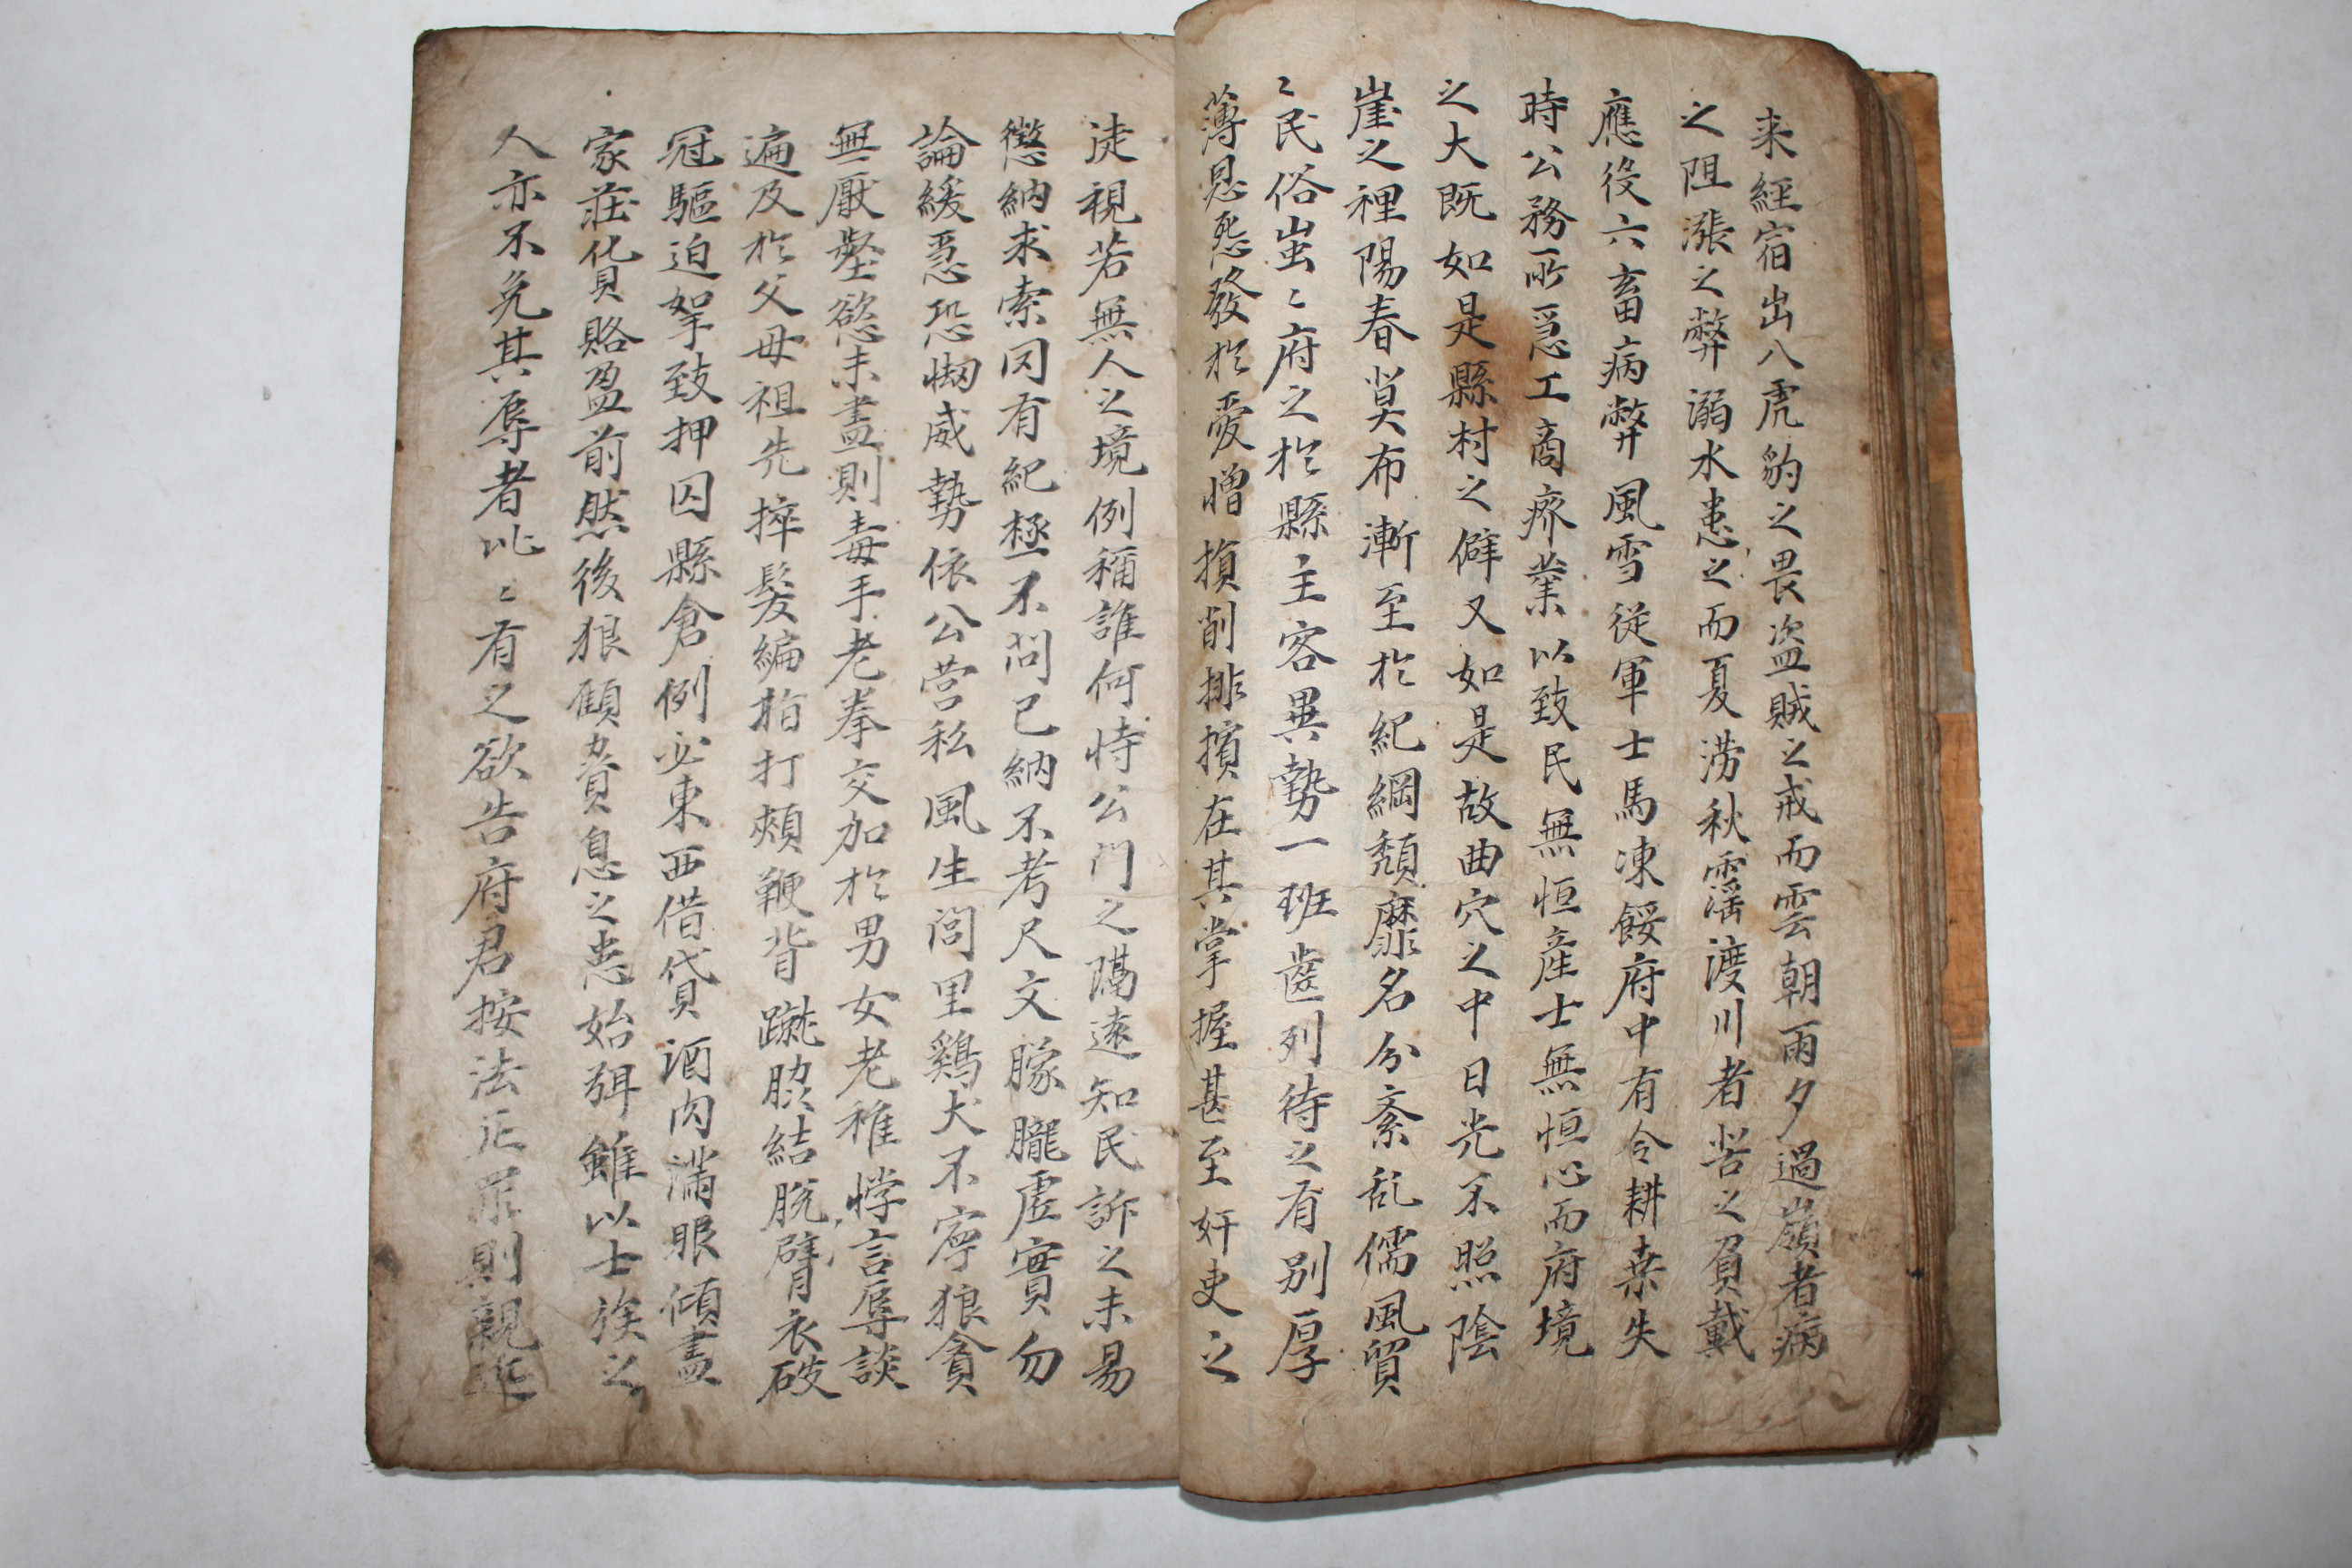 来經宿出入虎豹之畏盗賊之戒而雲朝雨夕過嶺者病
之阻漲之弊溺水患之而夏澇秋霪渡川者苦之負戴
應役六畜病弊風雪從軍士馬凍餒府中有令耕桒失
時公務所急工商廃業以致民無恒産士無恒心而府境
之大既如是縣村之僻又如是故曲穴之中日光不照陰
崖之裡陽春莫布漸至扵紀綱頽靡名分紊乱儒風貿
〻民俗蚩〻府之扵縣主客異勢一班齒列待之有别厚
薄恩怨發扵愛憎損削排擯在其掌握甚至奸吏之
徒視若無人之境例稱誰何恃公門之隔遠知民訴之未易
懲納求索罔有紀極不問已納不考尺文朦朧虚實勿
論緩急恐惻威勢依公营私風生閭里鷄犬不寧狼貪
無厭壑慾未盡則毒手老拳交加扵男女老稚悖言辱談
遍及扵父母祖先捽髮編拍打頰鞭背蹴肋結脫臂衣破
冠驅迫挐致押囚縣倉例必東西借貸酒肉滿眼傾盡
家莊貨賂盈前然後狼顧賁息之患始弭雖以士族之
人亦不免其辱者比〻有之欲告府君按法正罪則親